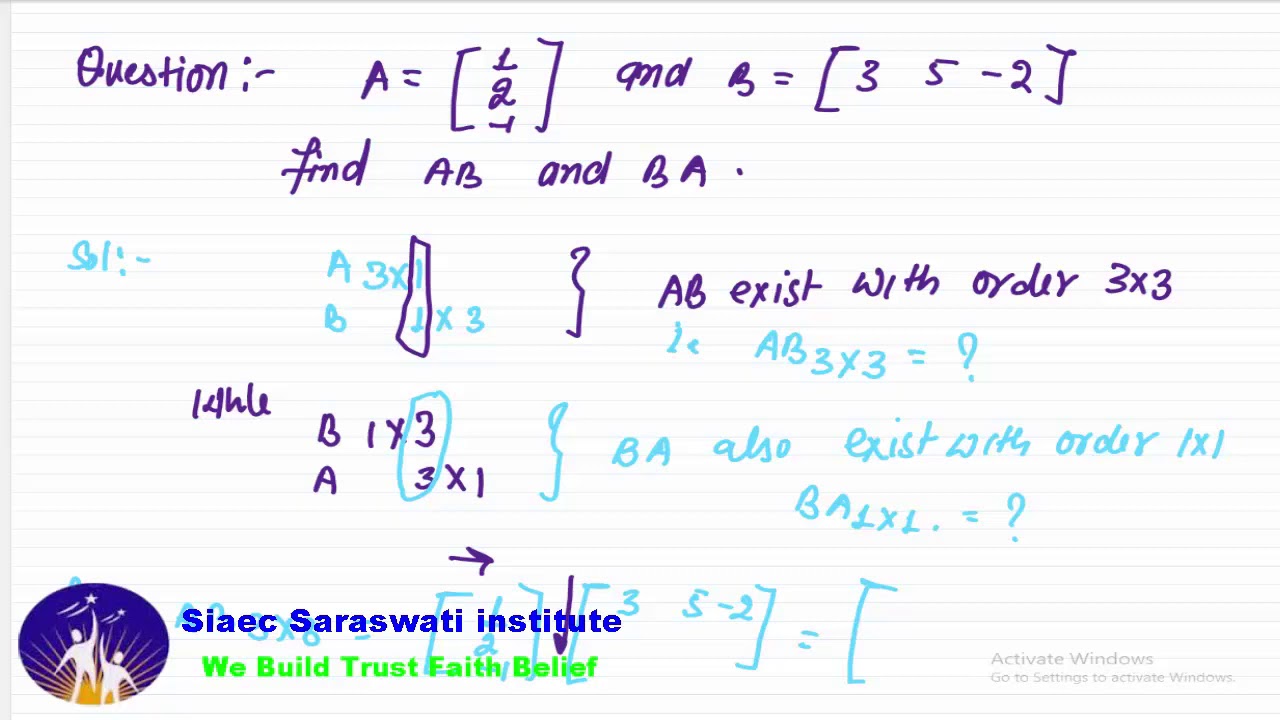 Question:- A = [1 2 -1] and B = [3 5 -2]
find AB and BA.
Sol:- A 3×1
B 1×3
} AB exist with order 3×3
ie AB 3×3 = ?
While
B 1×3
A 3×1
} BA also exist with order 1×1
BA 1×1. = ?
→
= [1 2 -1] ↓ [3 5 -2] = [
Siaec Saraswati institute
We Build Trust Faith Belief
Activate Windows
Go to Settings to activate Windows.